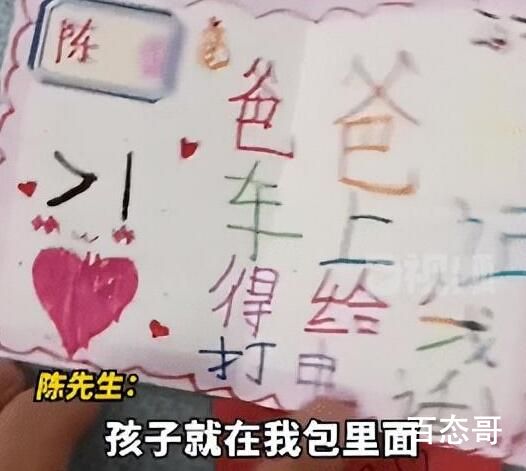 陈
爸爸
车上记
得给我
打电话
陈先生:
孩子就在我包里面
百态哥